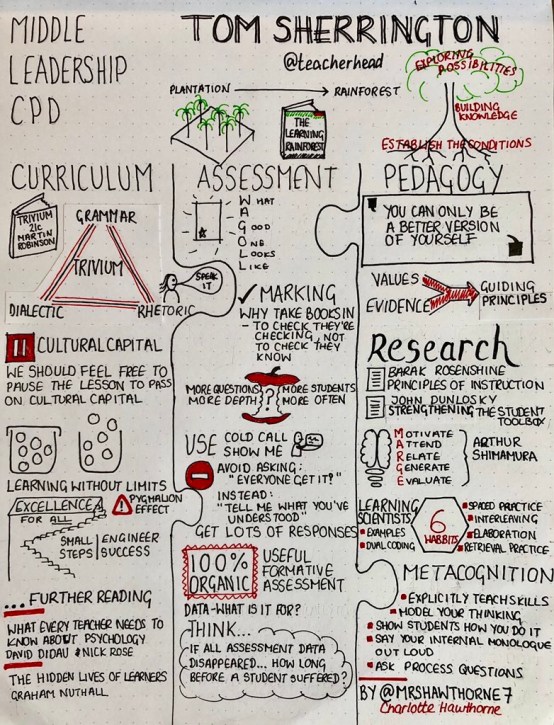 MIDDLE
LEADERSHIP
CPD
TOM SHERRINGTON
@teacherhead
PLANTATION
RAINFOREST
THE
LEARNING
RAINFOREST
EXPLORING
POSSIBILITIES
BUILDING
KNOWLEDGE
ESTABLISH THE CONDITIONS
CURRICULUM
TRIVIUM
21c
MARTIN
ROBINSON
GRAMMAR
TRIVIUM
DIALECTIC
RHETORIC
SPEAK
IT
CULTURAL CAPITAL
WE SHOULD FEEL FREE TO
PAUSE THE LESSON TO PASS
ON CULTURAL CAPITAL
LEARNING WITHOUT LIMITS
EXCELLENCE
FOR ALL
PYGMALION
EFFECT
SMALL
STEPS
ENGINEER
SUCCESS
... FURTHER READING
WHAT EVERY TEACHER NEEDS TO
KNOW ABOUT PSYCHOLOGY
DAVID DIDAU & NICK ROSE
THE HIDDEN LIVES OF LEARNERS
GRAHAM NUTHALL
ASSESSMENT
WHAT
A
GOOD
ONE
LOOKS
LIKE
MARKING
WHY TAKE BOOKS IN
- TO CHECK THEY'RE
CHECKING, NOT
TO CHECK THEY
KNOW
MORE QUESTIONS
MORE DEPTH
MORE STUDENTS
MORE OFTEN
USE
COLD CALL
SHOW ME
AVOID ASKING:
"EVERYONE GET IT?"
INSTEAD:
"TELL ME WHAT YOU'VE
UNDERSTOOD"
GET LOTS OF RESPONSES
100%
ORGANIC
USEFUL
FORMATIVE
ASSESSMENT
DATA-WHAT IS IT FOR?
THINK...
IF ALL ASSESSMENT DATA
DISAPPEARED... HOW LONG
BEFORE A STUDENT SUFFERED?
PEDAGOGY
YOU CAN ONLY BE
A BETTER VERSION
OF YOURSELF
VALUES
EVIDENCE
GUIDING
PRINCIPLES
Research
BARAK ROSENSHINE
PRINCIPLES OF INSTRUCTION
JOHN DUNLOSKY
STRENGTHENING THE STUDENT
TOOLBOX
MOTIVATE
ATTEND
RELATE
GENERATE
EVALUATE
ARTHUR
SHIMAMURA
LEARNING
SCIENTISTS
EXAMPLES
DUAL CODING
6
HABBITS
SPACED PRACTICE
INTERLEAVING
ELABORATION
RETRIEVAL PRACTICE
METACOGNITION
EXPLICITLY TEACH SKILLS
MODEL YOUR THINKING
SHOW STUDENTS HOW YOU DO IT
SAY YOUR INTERNAL MONOLOGUE
OUT LOUD
ASK PROCESS QUESTIONS
BY @MRSHAWTHORNE7
Charlotte Hawthorne